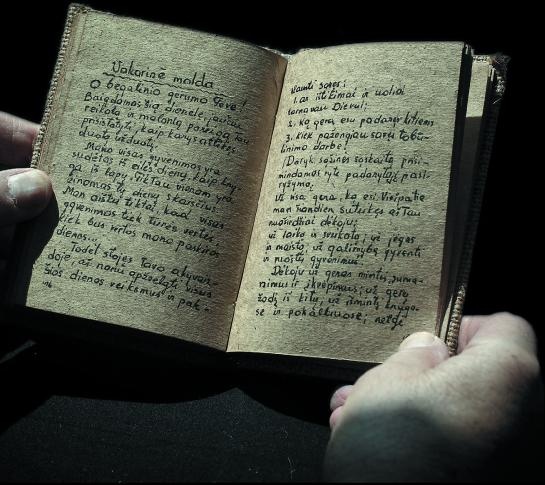 Vakarinė malda
O begalinio gerumo Tėve!
Baigdamas šią dienelę, jaučiu
reikalą ir malonią pareigą Tau
prisistatyti, kaip karys atlikęs
duotą
Mano visas gyvenimas yra
sudėtas iš eilės dienų kaip kny-
ga iš lapų. Tik Tau vienam yra
žinomas tų dienų skaičius.
Man aišku tiktai, kad visas
gyvenimas tiek turės vertės,
kiek bus vertos mano paskiros
dienos...
Todėl stojęs Tavo akyvaiz-
doje, aš noriu apžvelgti visus
šios dienos veiksmus ir pak-
1. ar ištikimai ir uoliai
tarnavau Dievui;
2. ką gera esu padaręs kitiems
3. kiek pažengiau savo tobu-
linimo darbe!
(Daryk sąžinės sąskaitą prisi-
mindamas ryte padarytąjį pasi-
ryžimą.
Už visa gera, ką esi Visipatie
man šiandien suteikęs aš Tau
nuoširdžiai dėkoju;
už laiką ir sveikatą; už jėgas
ir maistą; už galimybę gyventi
ir ruoštį gyvenimui.
Dėkoju už geras mintis, suma-
nimus ir įkvėpimus; už gerą
žodį iš kitų; už išmintį knygo-
se ir pokalbiuose; netgi